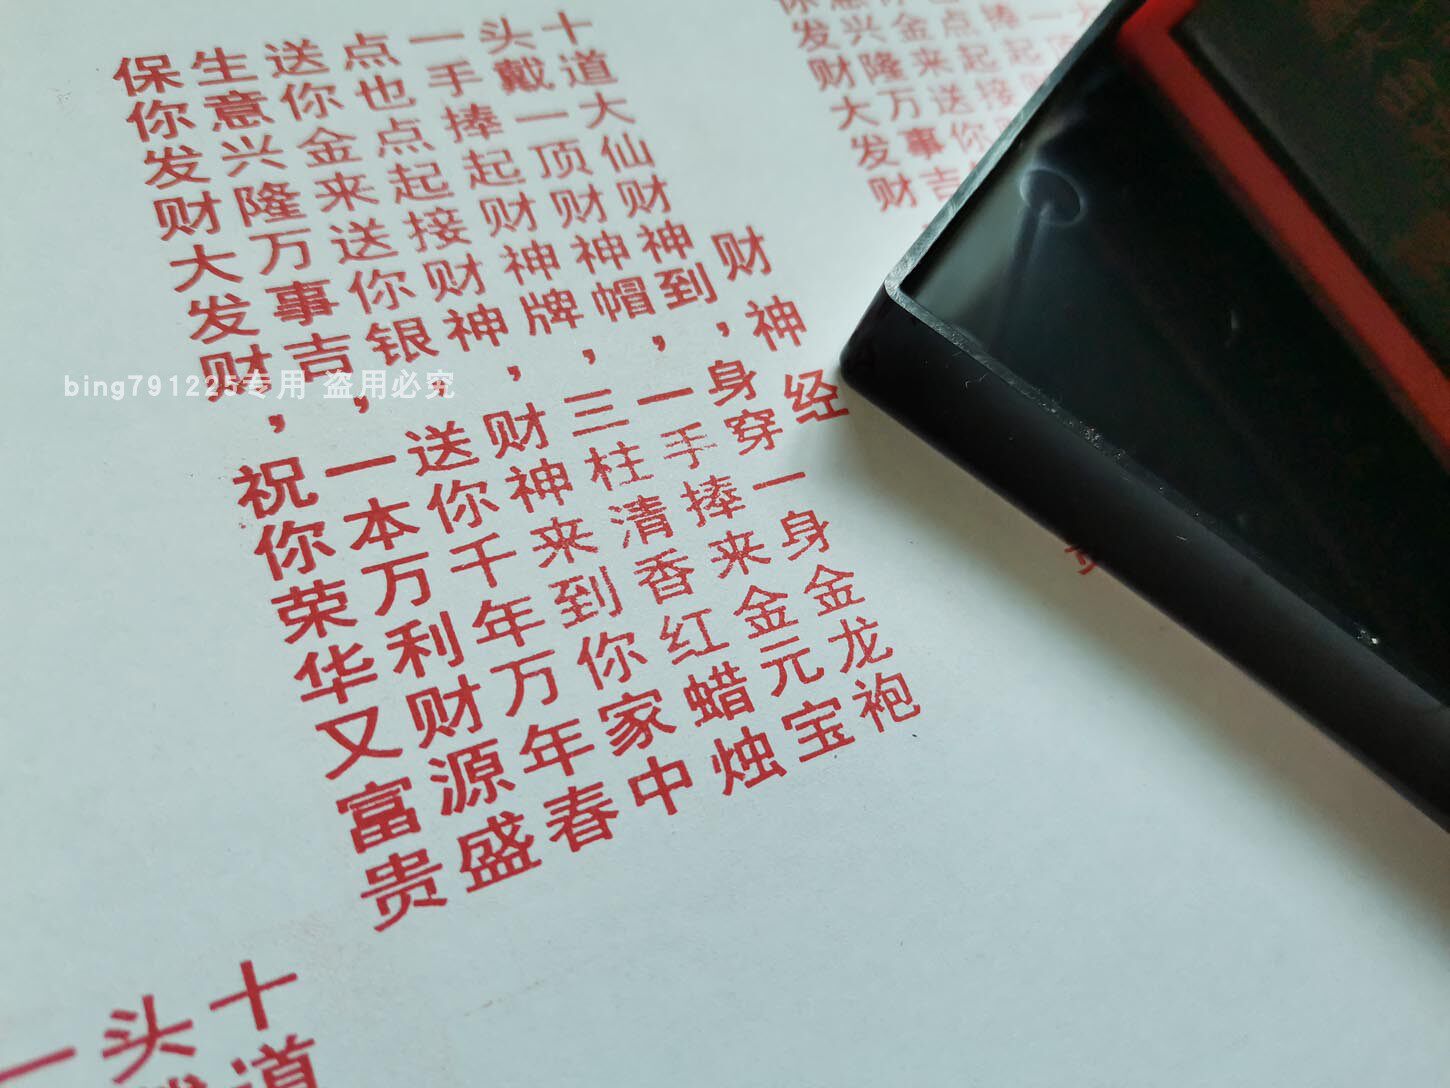 财神经
十道大仙财神到，身穿一身金龙袍
头戴一顶财神帽，一手捧来金元宝
一手捧起财神牌，三柱清香红蜡烛
点也点起接财神，财神来到你家中
送你金来送你银，送你千年万年春
生意兴隆万事吉，一本万利财源盛
保你发财大发财，祝你荣华又富贵
bing791225专用 盗用必究
兴隆万事吉
发财大发财
十道
头
一